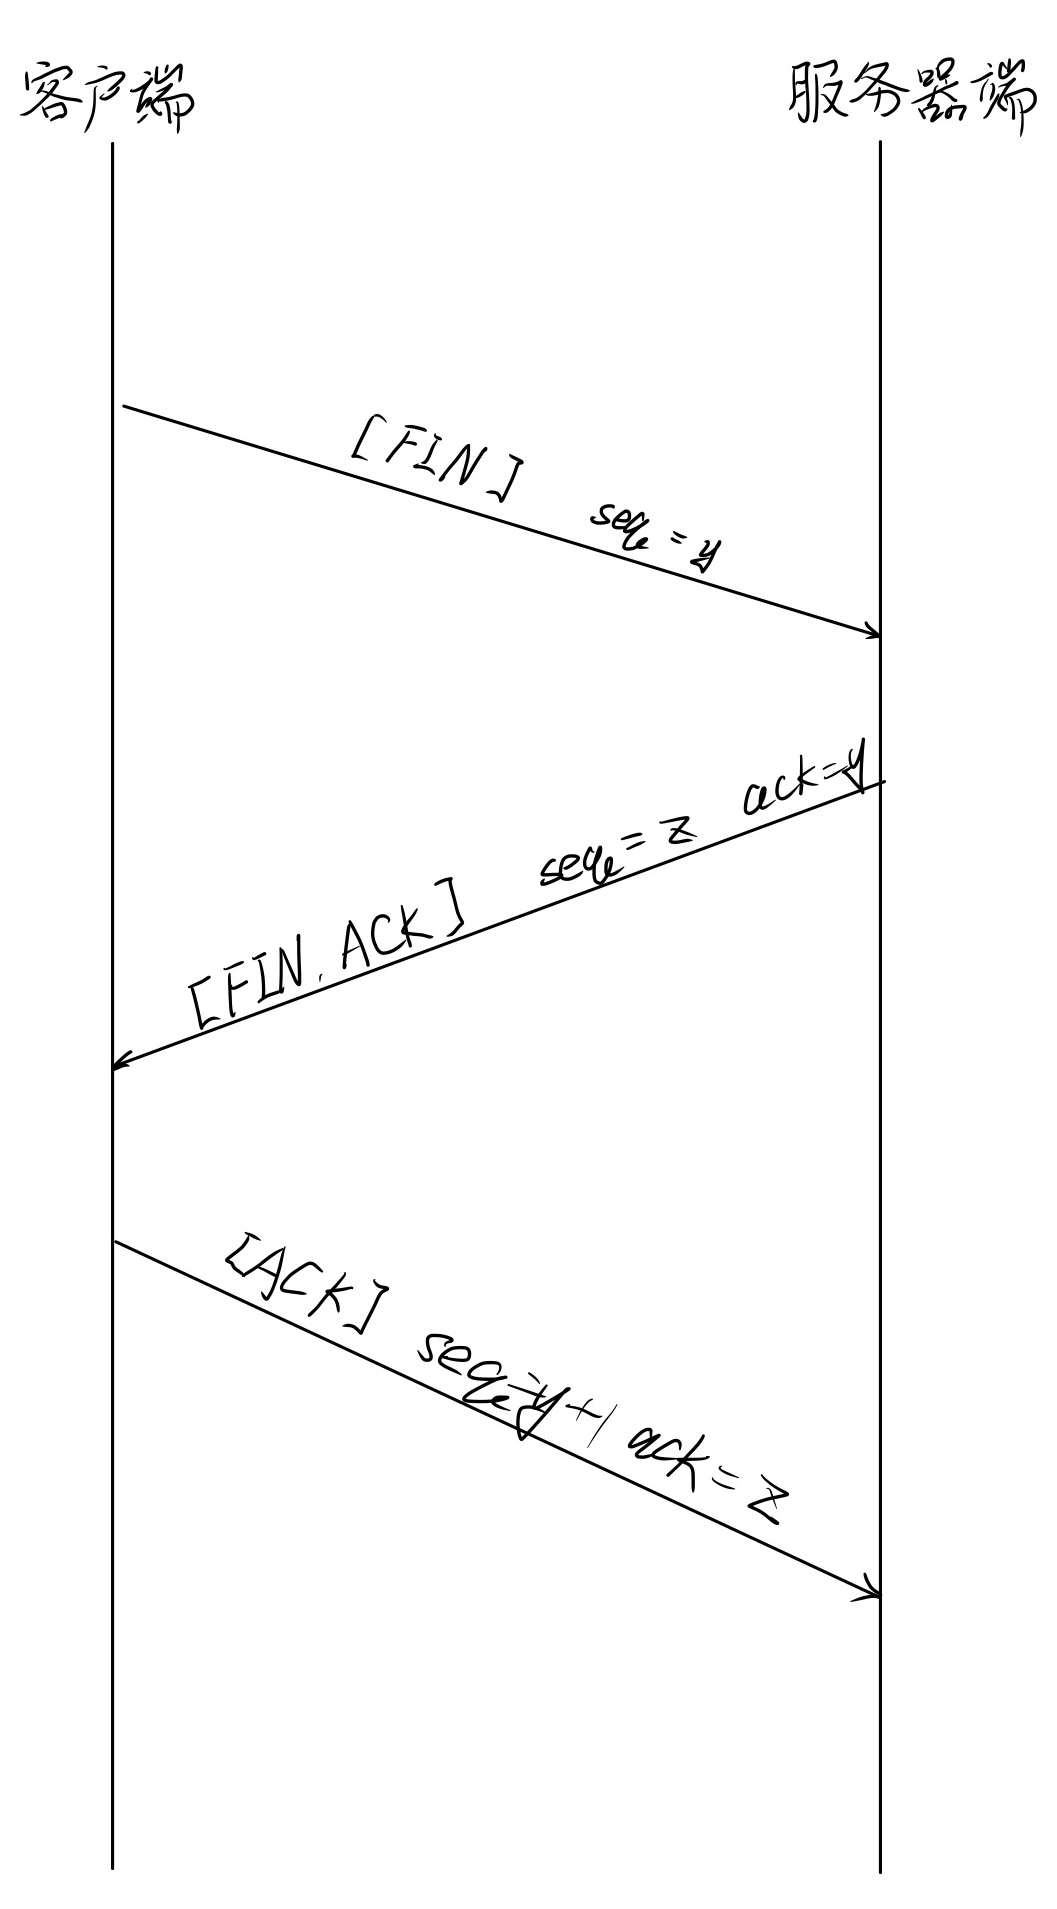 客户端
服务器端
[FIN] seq=y
[FIN, ACK] seq=z ack=y
[ACK] seq=y+1 ack=z